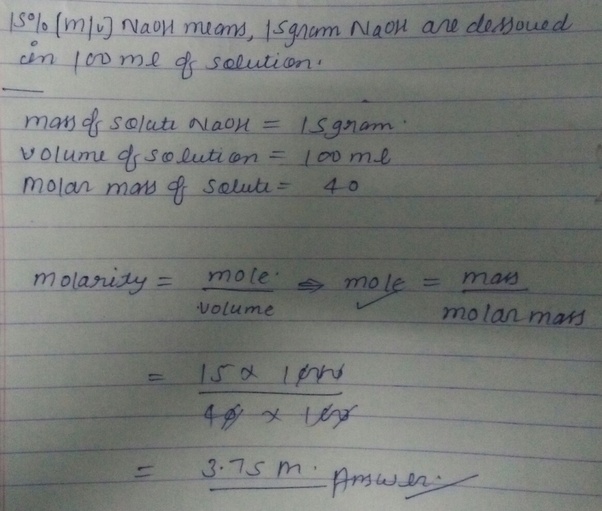 15% [m/v] NaOH means, 15gram NaOH are dessoued
in 100 ml of solution.
mass of solute NaOH = 15gram.
volume of solution = 100 ml
molar mass of solute = 40
molarity = mole / volume ⇒ mole = mass / molar mass
= 15 x 1000 / 40 x 100
= 3.75 m. Answer.